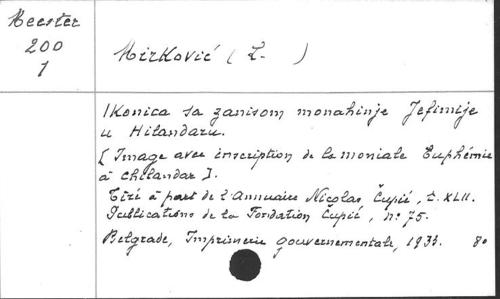 Meester
200
1
Mirković (L. )
Ikonica sa zanisom monahinje Jefimije
u Hilandaru.
[Image avec inscription de la moniale Euphémie
à Chilandar].
Tiré à part de l'Annuaire Nicolas Čupić, t. XLII.
Publications de la Fondation Čupić, n° 75.
Belgrade, Imprimerie gouvernementale, 1933. 8o